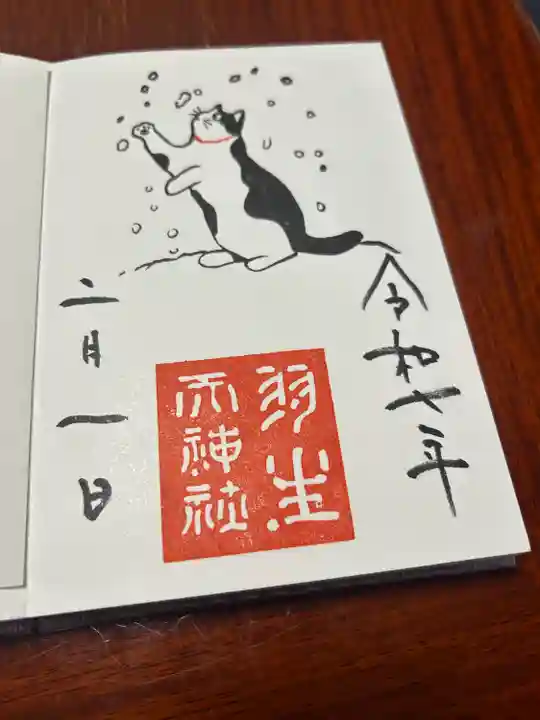 令和七年
羽生
天神社
二月一日